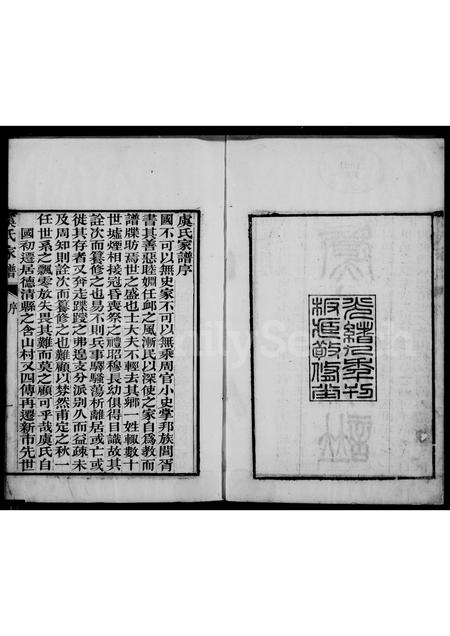 光緒丙子秋刊
板係敦倫堂
虞氏家譜序
國不可以無史家不可以無乘周官小史掌邦族閭胥
書其善惡睦婣任卹之風漸民以深使之家自爲教而
譜牒昉焉世之盛也士大夫不輕去其鄉一姓輒數十
世墟煙相接冠昏喪祭之禮昭穆長幼俱得目識故其
詮次而纂修之也易不則兵事驛騷蕩析離居或亡或
徙其存者又奔走蹀躞之弗遑支分派别久而益疎未
及周知則詮次而纂修之也難顧以棼然甫定之秋一
任世系之飄零放失畏其難而莫之顧可乎哉虞氏自
國初遷居德清縣之含山村又四傳再遷新市先世
虞氏家譜 序
FamilySearch